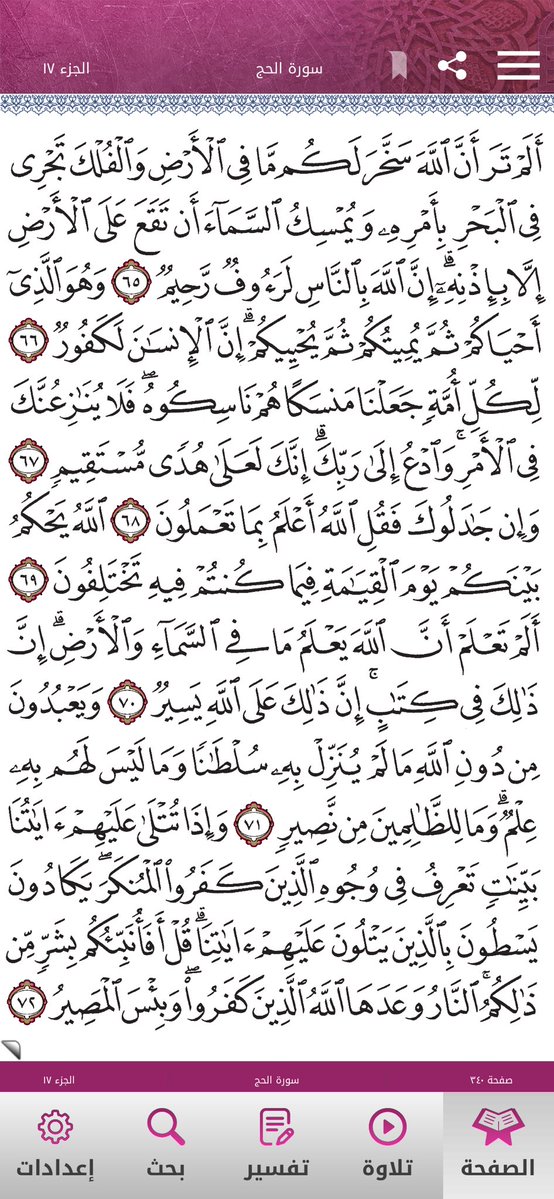 سورة الحج
الجزء ١٧
أَلَمْ تَرَ أَنَّ ٱللَّهَ سَخَّرَ لَكُم مَّا فِى ٱلْأَرْضِ وَٱلْفُلْكَ تَجْرِى
فِى ٱلْبَحْرِ بِأَمْرِهِۦ وَيُمْسِكُ ٱلسَّمَآءَ أَن تَقَعَ عَلَى ٱلْأَرْضِ
إِلَّا بِإِذْنِهِۦٓ ۗ إِنَّ ٱللَّهَ بِٱلنَّاسِ لَرَءُوفٌ رَّحِيمٌ ٦٥ وَهُوَ ٱلَّذِىٓ
أَحْيَاكُمْ ثُمَّ يُمِيتُكُمْ ثُمَّ يُحْيِيكُمْ ۗ إِنَّ ٱلْإِنسَـٰنَ لَكَفُورٌ ٦٦
لِّكُلِّ أُمَّةٍ جَعَلْنَا مَنسَكًا هُمْ نَاسِكُوهُ ۖ فَلَا يُنَـٰزِعُنَّكَ
فِى ٱلْأَمْرِ ۚ وَٱدْعُ إِلَىٰ رَبِّكَ ۖ إِنَّكَ لَعَلَىٰ هُدًى مُّسْتَقِيمٍ ٦٧
وَإِن جَـٰدَلُوكَ فَقُلِ ٱللَّهُ أَعْلَمُ بِمَا تَعْمَلُونَ ٦٨ ٱللَّهُ يَحْكُمُ
بَيْنَكُمْ يَوْمَ ٱلْقِيَـٰمَةِ فِيمَا كُنتُمْ فِيهِ تَخْتَلِفُونَ ٦٩
أَلَمْ تَعْلَمْ أَنَّ ٱللَّهَ يَعْلَمُ مَا فِى ٱلسَّمَآءِ وَٱلْأَرْضِ ۗ إِنَّ
ذَٰلِكَ فِى كِتَـٰبٍ ۚ إِنَّ ذَٰلِكَ عَلَى ٱللَّهِ يَسِيرٌ ٧٠ وَيَعْبُدُونَ
مِن دُونِ ٱللَّهِ مَا لَمْ يُنَزِّلْ بِهِۦ سُلْطَـٰنًا وَمَا لَيْسَ لَهُم بِهِۦ
عِلْمٌ ۗ وَمَا لِلظَّـٰلِمِينَ مِن نَّصِيرٍ ٧١ وَإِذَا تُتْلَىٰ عَلَيْهِمْ ءَايَـٰتُنَا
بَيِّنَـٰتٍ تَعْرِفُ فِى وُجُوهِ ٱلَّذِينَ كَفَرُوا۟ ٱلْمُنكَرَ ۖ يَكَادُونَ
يَسْطُونَ بِٱلَّذِينَ يَتْلُونَ عَلَيْهِمْ ءَايَـٰتِنَا ۗ قُلْ أَفَأُنَبِّئُكُم بِشَرٍّ مِّن
ذَٰلِكُمُ ۚ ٱلنَّارُ وَعَدَهَا ٱللَّهُ ٱلَّذِينَ كَفَرُوا۟ ۖ وَبِئْسَ ٱلْمَصِيرُ ٧٢
صفحة ٣٤٠
سورة الحج
الجزء ١٧
الصفحة
تلاوة
تفسير
بحث
إعدادات